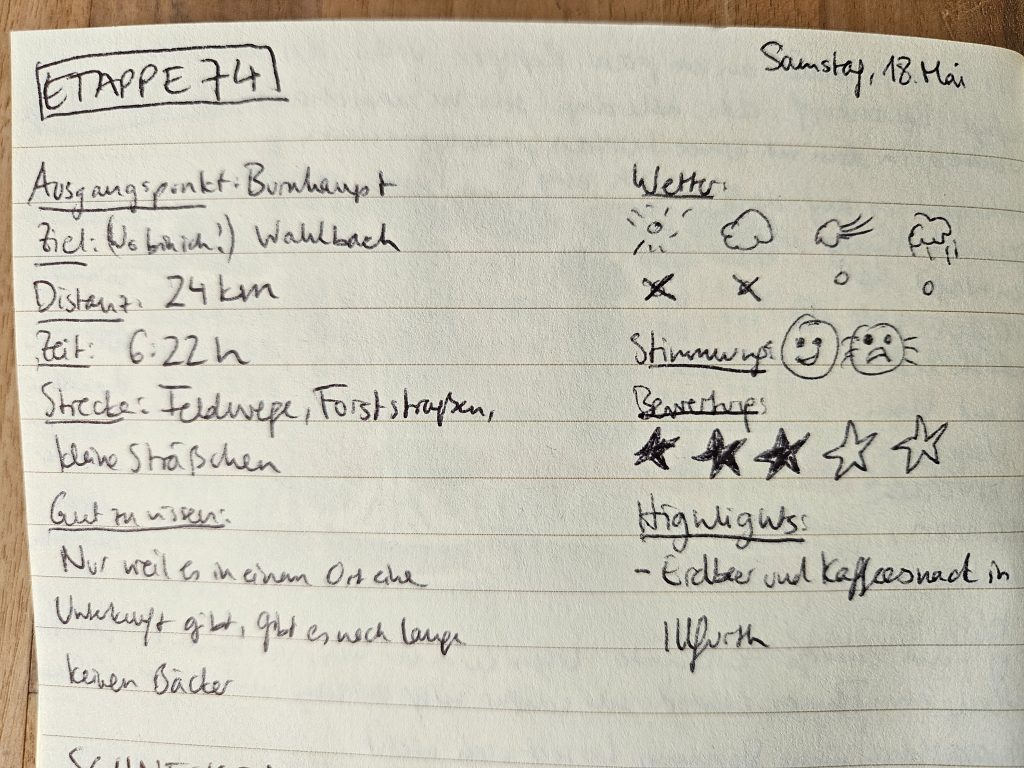 ETAPPE 74
Samstag, 18. Mai
Ausgangspunkt: Burnhaupt
Ziel: (Wo bin ich!) Wahlbach
Distanz: 24 km
Zeit: 6:22 h
Strecke: Feldwege, Forststraßen,
kleine Sträßchen
Gut zu wissen:
Nur weil es in einem Ort eine
Unterkunft gibt, gibt es noch lange
keinen Bäcker
Wetter:
Stimmung:
Bewertung:
Highlights:
- Erdbeer und Kaffeesnack in
Illfurth